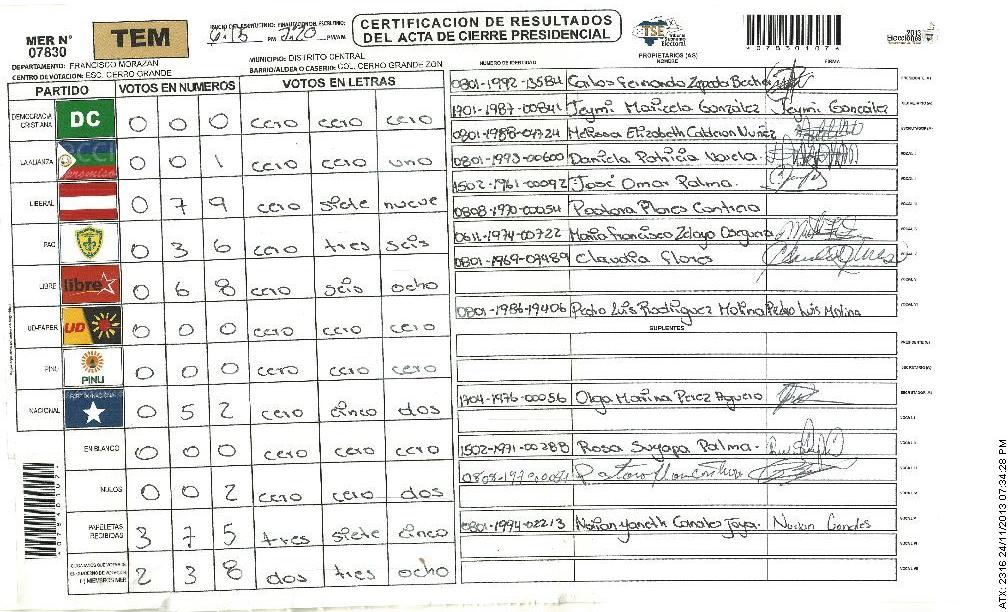 MER N° 07830
TEM
INICIO DEL ESCRUTINIO: FINALIZACION ESCRUTINIO:
PM 7:20 P.M/AM.
CERTIFICACION DE RESULTADOS
DEL ACTA DE CIERRE PRESIDENCIAL
TSE Tribunal Supremo Electoral
2013 Elecciones
DEPARTAMENTO: FRANCISCO MORAZAN
MUNICIPIO: DISTRITO CENTRAL
CENTRO DE VOTACION: ESC. CERRO GRANDE
BARRIO/ALDEA O CASERIO: COL. CERRO GRANDE ZON
PARTIDO VOTOS EN NUMEROS VOTOS EN LETRAS
DEMOCRACIA CRISTIANA DC 0 0 0 cero cero cero
LA ALIANZA 0 0 1 cero cero uno
LIBERAL 0 7 9 cero siete nueve
PAC 0 3 6 cero tres seis
LIBRE libre 0 6 8 cero seis ocho
UD-FAPER UD 0 0 0 cero cero cero
PINU PINU 0 0 0 cero cero cero
NACIONAL 0 5 2 cero cinco dos
EN BLANCO 0 0 0 cero cero cero
NULOS 0 0 2 cero cero dos
PAPELETAS RECIBIDAS 3 7 5 tres siete cinco
2 3 8 dos tres ocho
PROPIETARIOS (AS)
NUMERO DE IDENTIDAD NOMBRE FIRMA
0801-1992-13584 Carlos Fernando Zepeda
1701-1987-00841 Jeymi Maricela González Jeymi González
0801-1988-04724 Melissa Elizabeth Calderon Nuñez
0801-1993-00600 Daniela Patricia Varela
1502-1961-00092 José Omar Palma.
0808-1970-00054 Pastora Flores
0611-1974-00722 Mario Francisco Zelaya
0801-1969-09489 Claudia Flores
0801-1986-19406 Pedro Luis Rodriguez Molina Pedro Luis Molina
SUPLENTES
1704-1976-00056 Olga Marina Perez Aguero
1502-1971-00288 Rosa Suyapa Palma.
0801-1994-02213 Yaneth Canales
ATX: 2316 24/11/2013 07:34:28 PM